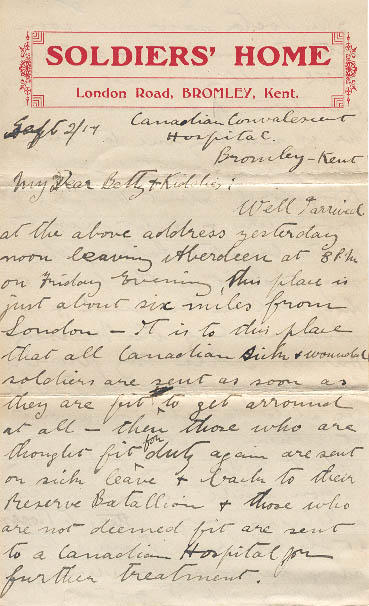 SOLDIERS' HOME
London Road, BROMLEY, Kent.
Sept 2/17
Canadian Convalescent
Hospital.
Bromley-Kent
My Dear Betty & Kiddies:
Well I arrived
at the above address yesterday
noon leaving Aberdeen at 8 P.M.
on Friday Evening, this place is
just about six miles from
London - It is to this place
that all Canadian sick & wounded
soldiers are sent as soon as
they are fit to get arround
at all - then those who are
thought fit for duty again are sent
on sick leave & back to their
Reserve Batallion & those who
are not deemed fit are sent
to a Canadian Hospital for
further treatment.